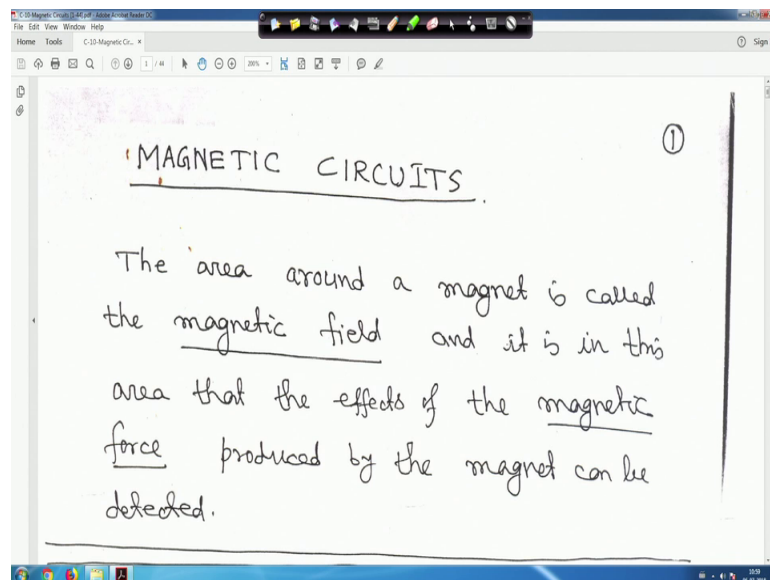 C-10-Magnetic Circuits (1-44).pdf - Adobe Acrobat Reader DC
File Edit View Window Help
Home Tools C-10-Magnetic Cir... × Sign
1 / 44 200%
①
MAGNETIC CIRCUITS.
The area around a magnet is called
the magnetic field and it is in this
area that the effects of the magnetic
force produced by the magnet can be
detected.
10:59